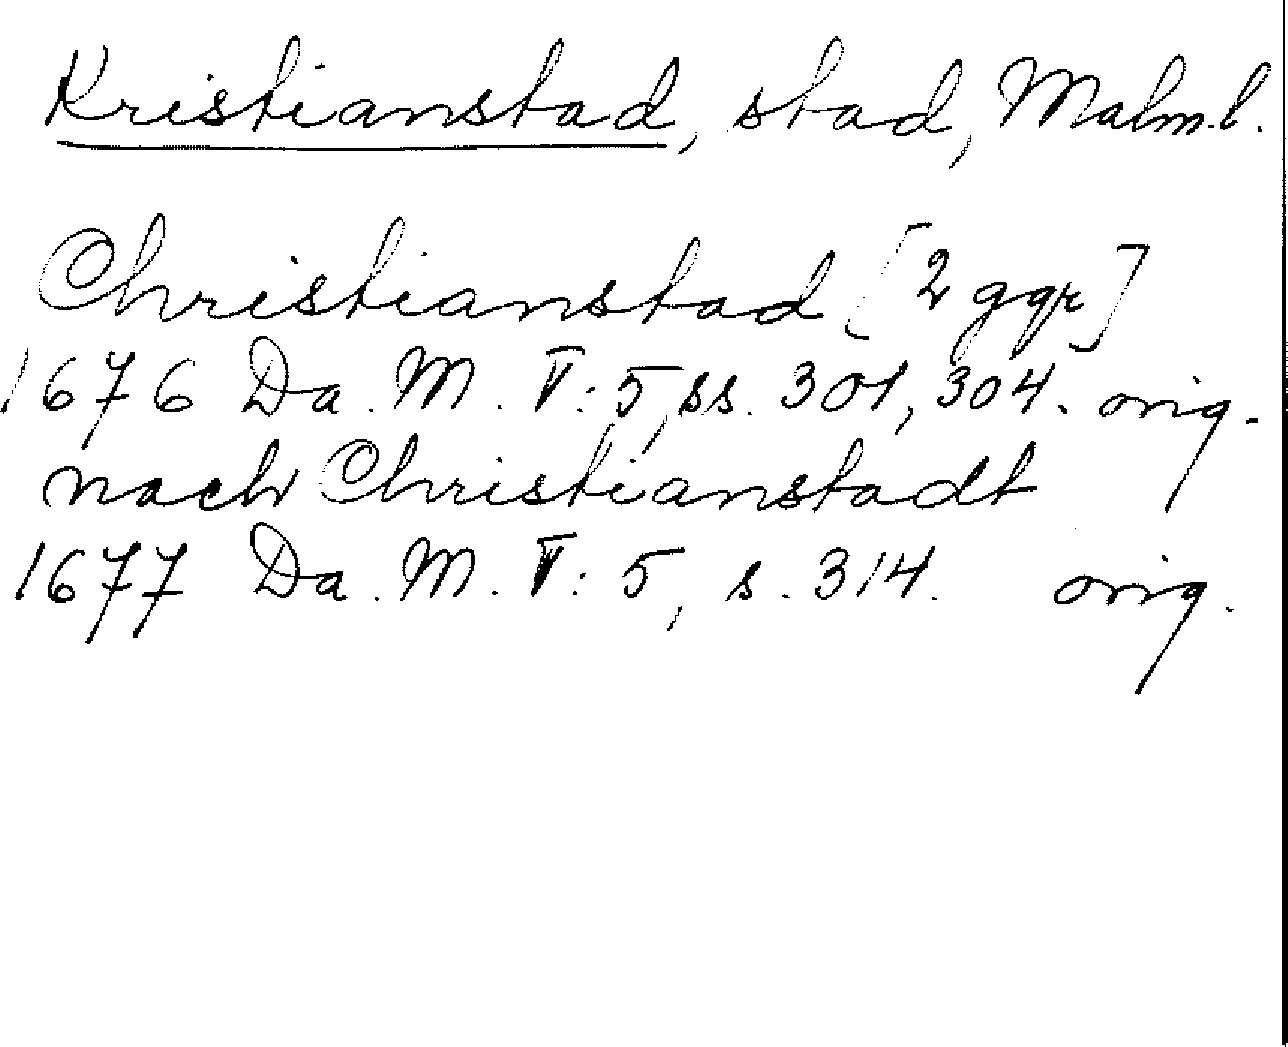 Kristianstad, stad, Malm.l.
Christianstad [2 ggr]
1676 Da. M. V: 5, ss. 301, 304. orig.
nach Christianstadt
1677 Da. M. V: 5, s. 314. orig.